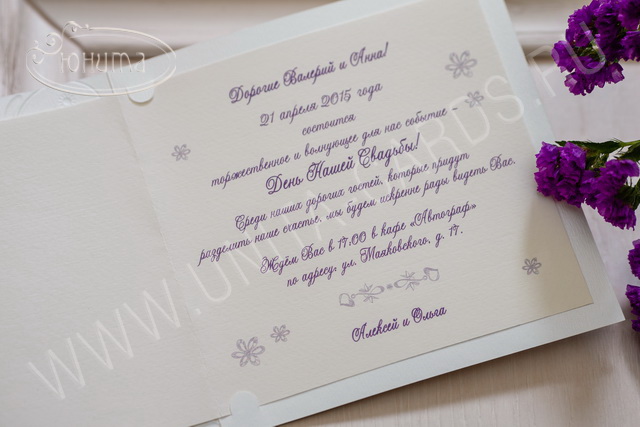 Юнита
Дорогие Валерий и Анна!
21 апреля 2015 года
состоится
торжественное и волнующее для нас событие –
День Нашей Свадьбы!
Среди наших дорогих гостей, которые придут
разделить наше счастье, мы будем искренне рады видеть Вас.
Ждём Вас в 17.00 в кафе «Автограф»
по адресу: ул. Маяковского, д. 17.
Алексей и Ольга
WWW.UNITA-CARDS.RU